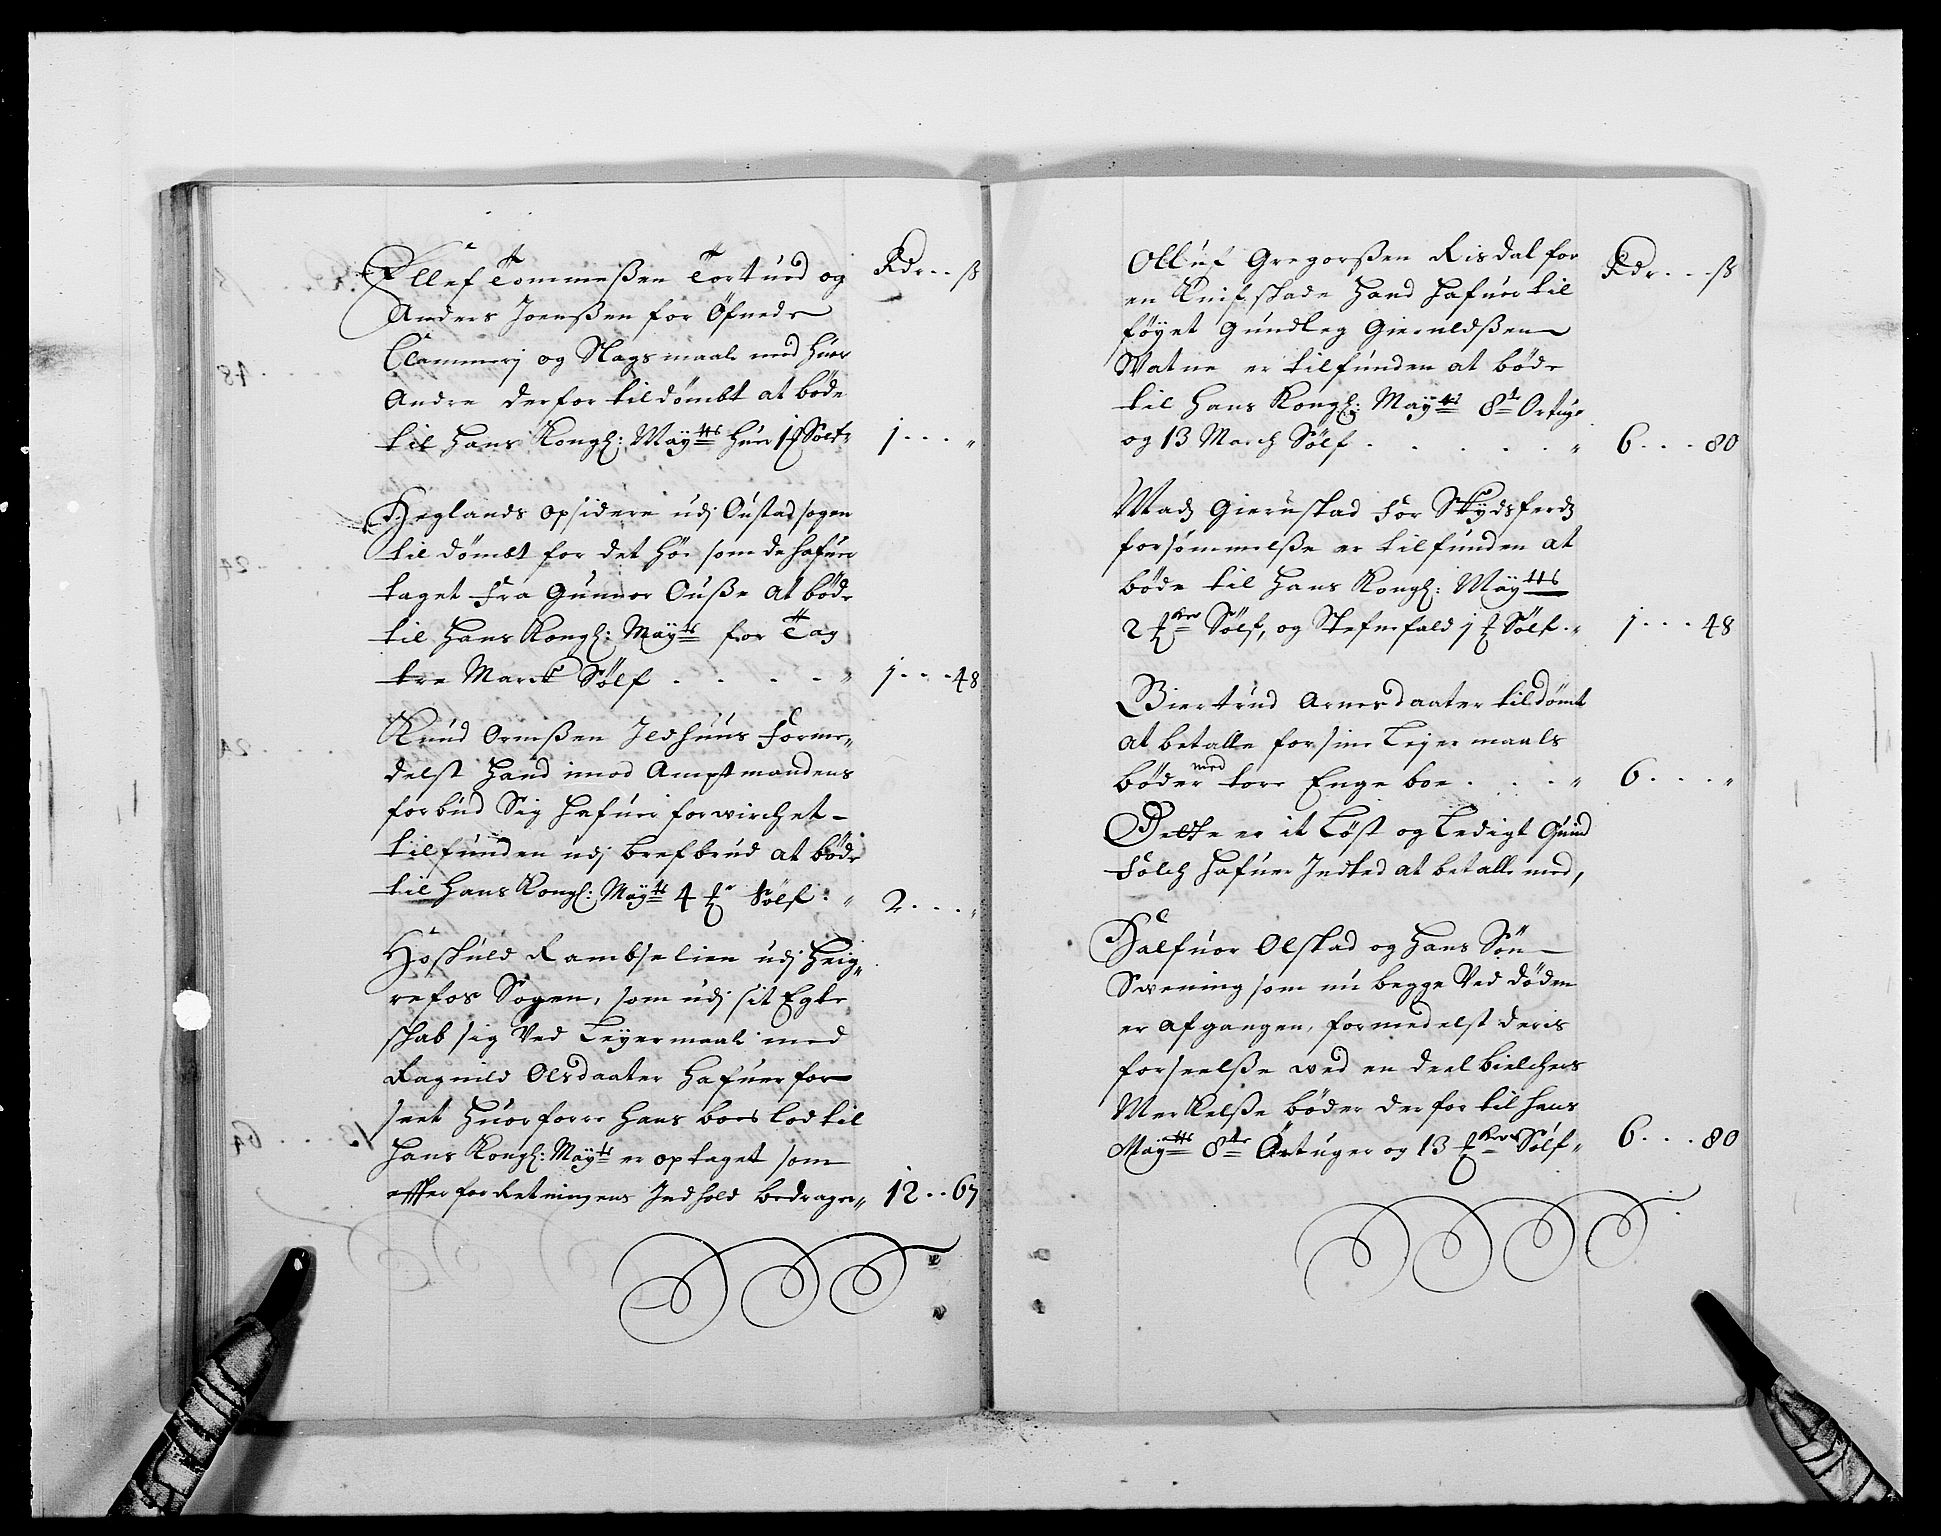 Rdr.. ß
Ellef Tommeßen Torturd og
Anders Joenßen for Øfnede
Clammerj og Slagsmaal med huer
Andre derfor tildømbt at bøde
til Hans Kongl: Mayts huer 1 Sølf 1...„
Heglands opsidere udj Oustad sogen
til dømbt for det hör som de hafuer
taget fra Gunner Ouße at bøde
til Hans Kongl: Mayts for Tag
tre Marck Sølf . . . . „ 1...48
Knud Ormßen Jedhuus forme„
delst hand imod Ampt mandens
forbud Sig hafuer forwirchet
tilfunden udj brefbrud at bøde
til Hans Kongl: Mayts 4 Sølf „ 2...„
Hoskuld Rambselien udj Heig„
refos Sogen, som udj sit Egte
skab sig Ved Leyermaal med
Ragnild Olsdaater hafuer for
seet huorforre hans boes lod til
Hans Kongl: Mayts er optaget som
effter forRetningens Indhold bedrager„ 12..67
Rdr...ß
Olluf Gregorßen Risdal for
en Knif skade hand hafuer til
føyet Gundleg Gieruldßen
Watne er tilfunden at bøde
til Hans Kongl: Mayts 8te Ortuge
og 13 March Sølf . . . . „ 6...80
Mads Gierustad for Skydsferds
forsømmelße er tilfunden at
bøde til Hans Kongl: Mayts
2 Sølf, og Stefnefald 1 Sølf „ 1...48
Biertrud Arnesdaater tildømt
at betalle for sine Leyermaals
bøder med tore Engeboe . . . „ 6...„
Dette er it Løst og Ledigt Quind
folch hafuer Indted at betalle med,
Halfuor Olstad og hans Søn
Swening som nu begge Ved døden
er afgangen, formedelst deris
forseelße wed en deel bielchers
Merkelße bøder derfor til hans
Mayts 8te Örtuger og 13 Sølf „ 6...80